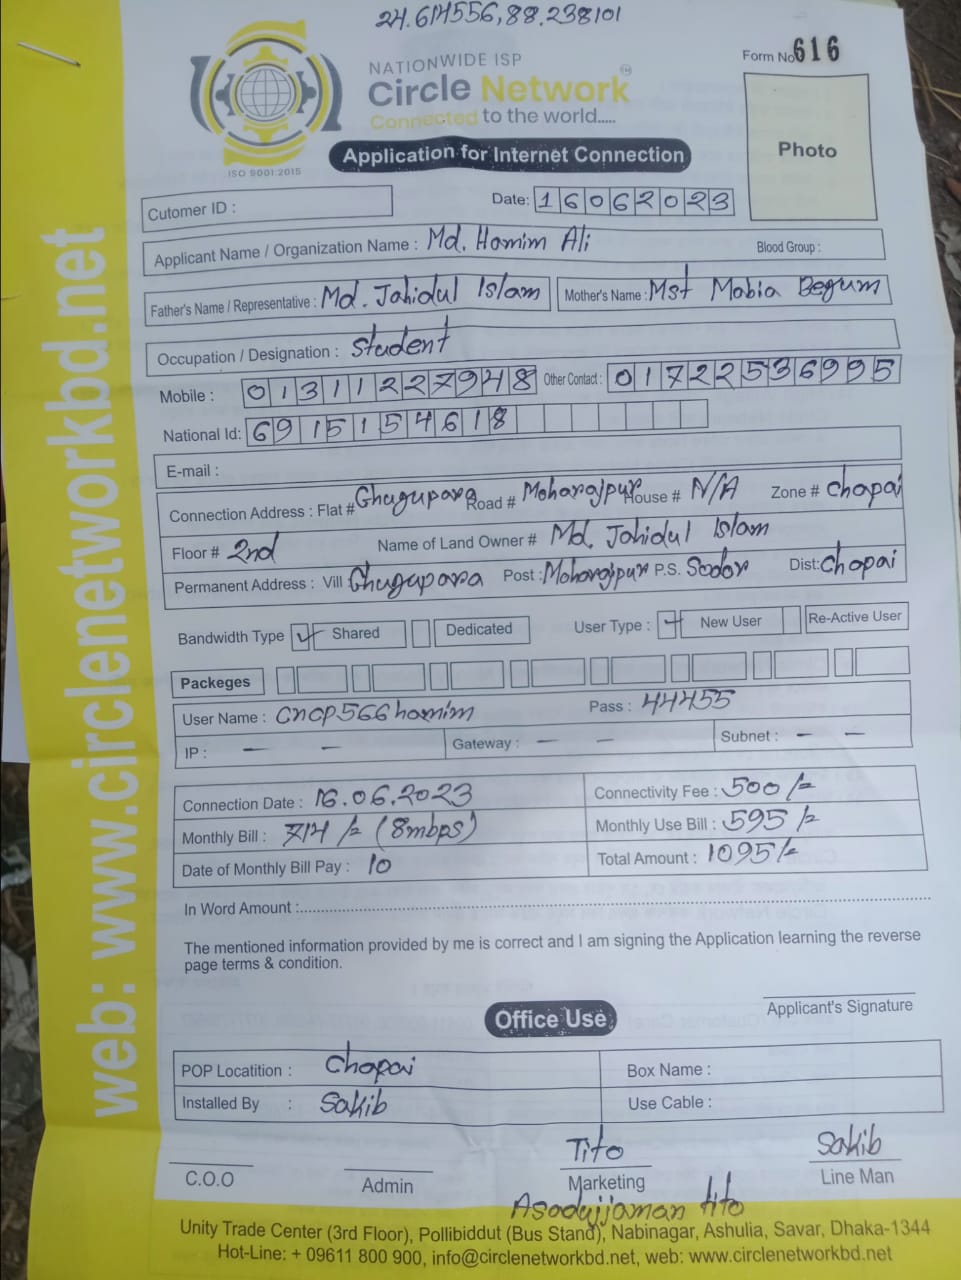 24.614556,88.238101
NATIONWIDE ISP
Circle Network
Connected to the world.....
ISO 9001:2015
Form No 616
Photo
Application for Internet Connection
Cutomer ID :
Date: 16062023
Applicant Name / Organization Name : Md. Hamim Ali Blood Group :
Father's Name / Representative : Md. Jahidul Islam Mother's Name : Mst Mabia Begum
Occupation / Designation : Student
Mobile : 01311227948 Other Contact : 01722536995
National Id: 6915154618
E-mail :
Connection Address : Flat # Ghugupara Road # Moharajpur House # N/A Zone # Chapai
Floor # 2nd Name of Land Owner # Md. Jahidul Islam
Permanent Address : Vill : Ghugupara Post : Moharajpur P.S. Sador Dist: Chapai
Bandwidth Type ✓ Shared Dedicated User Type : ✓ New User Re-Active User
Packeges
User Name : cncp566hamim Pass : 44455
IP : — — Gateway : — — Subnet : — —
Connection Date : 16.06.2023 Connectivity Fee : 500/=
Monthly Bill : 714/= (8mbps) Monthly Use Bill : 595/=
Date of Monthly Bill Pay : 10 Total Amount : 1095/=
In Word Amount :
The mentioned information provided by me is correct and I am signing the Application learning the reverse
page terms & condition.
Applicant's Signature
Office Use
POP Locatition : Chapai Box Name :
Installed By : Sakib Use Cable :
Tito Sakib
C.O.O Admin Marketing Line Man
Asadujjaman tito
Unity Trade Center (3rd Floor), Pollibiddut (Bus Stand), Nabinagar, Ashulia, Savar, Dhaka-1344
Hot-Line: + 09611 800 900, info@circlenetworkbd.net, web: www.circlenetworkbd.net
web: www.circlenetworkbd.net